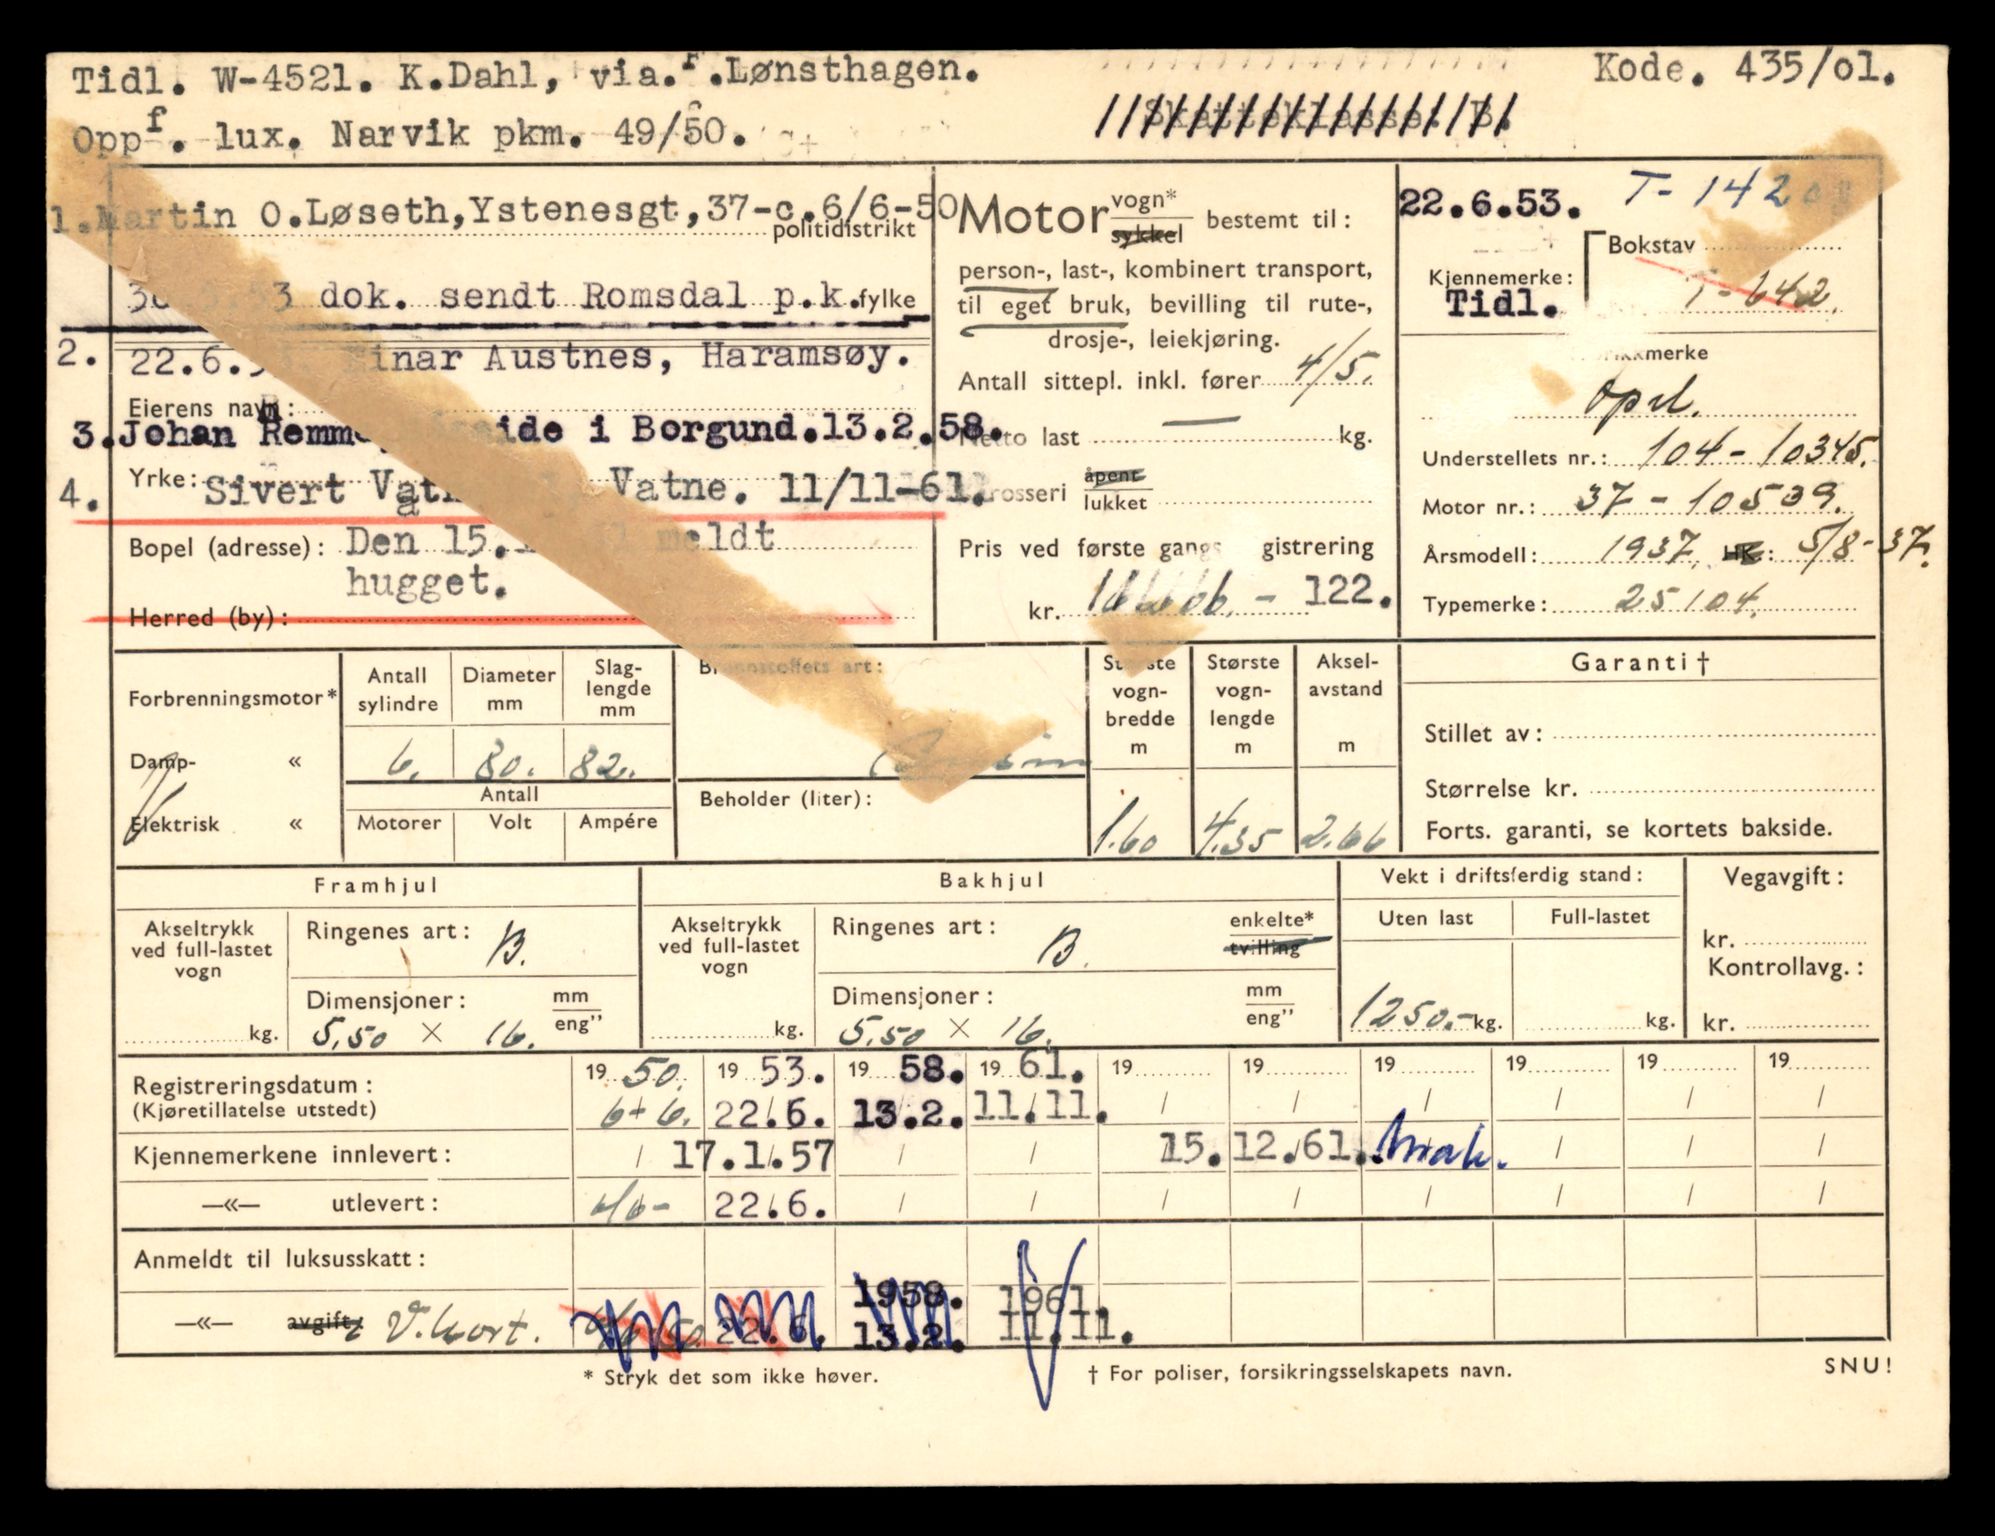 Tidl. W-4521. K.Dahl, via.F.Lønsthagen.
Kode. 435/ol.
Oppf. lux. Narvik pkm. 49/50.
Skatteklasse. B.
1.Martin O.Løseth,Ystenesgt,37-c.6/6-50
politidistrikt
dok. sendt Romsdal p.k.
fylke
2. 22.6.53. Einar Austnes, Haramsøy.
Eierens navn:
3.Johan Remmøy i Borgund.13.2.58.
Yrke:
4. Sivert Vatne. 11/11-61.
Bopel (adresse): Den 15. meldt
hugget.
Herred (by):
Motor vogn* sykkel bestemt til:
person-, last-, kombinert transport,
til eget bruk, bevilling til rute-,
drosje-, leiekjøring.
Antall sittepl. inkl. fører 4/5.
Netto last — kg.
Karosseri åpent lukket
Pris ved første gangs gistrering
kr. - 122.
22.6.53. T-1420
Bokstav
Kjennemerke:
Tidl. T-642.
merke
Opel.
Understellets nr.: 104-10345.
Motor nr.: 37-10539.
Årsmodell: 1937. HK.: 5/8-37.
Typemerke: 25104.
Forbrenningsmotor*
Damp- «
Elektrisk «
Antall sylindre 6.
Diameter mm 80.
Slag-lengde mm 82.
Antall
Motorer Volt Ampére
Brennstoffets art: Bensin
Beholder (liter):
Største vogn-bredde m 1.60
Største vogn-lengde m 4.35
Aksel-avstand m 2.66
Garanti†
Stillet av:
Størrelse kr.
Forts. garanti, se kortets bakside.
Framhjul
Akseltrykk ved full-lastet vogn kg.
Ringenes art: B.
Dimensjoner: mm eng”
5.50 × 16.
Bakhjul
Akseltrykk ved full-lastet vogn kg.
Ringenes art: B. enkelte* tvilling
Dimensjoner: mm eng”
5.50 × 16.
Vekt i driftsferdig stand:
Uten last Full-lastet
1250.- kg. kg.
Vegavgift:
kr.
Kontrollavg.:
kr.
Registreringsdatum: 19 50. 19 53. 19 58. 19 61. 19 19 19 19 19 19
(Kjøretillatelse utstedt) 6/6. 22.6. 13.2. 11.11.
Kjennemerkene innlevert: 17.1.57 15.12.61.
—«— utlevert: 6/6- 22.6.
Anmeldt til luksusskatt:
—«— avgift: V.kort. 22.6. 1958. 13.2. 1961. 11.11.
* Stryk det som ikke høver.
† For poliser, forsikringsselskapets navn.
SNU!